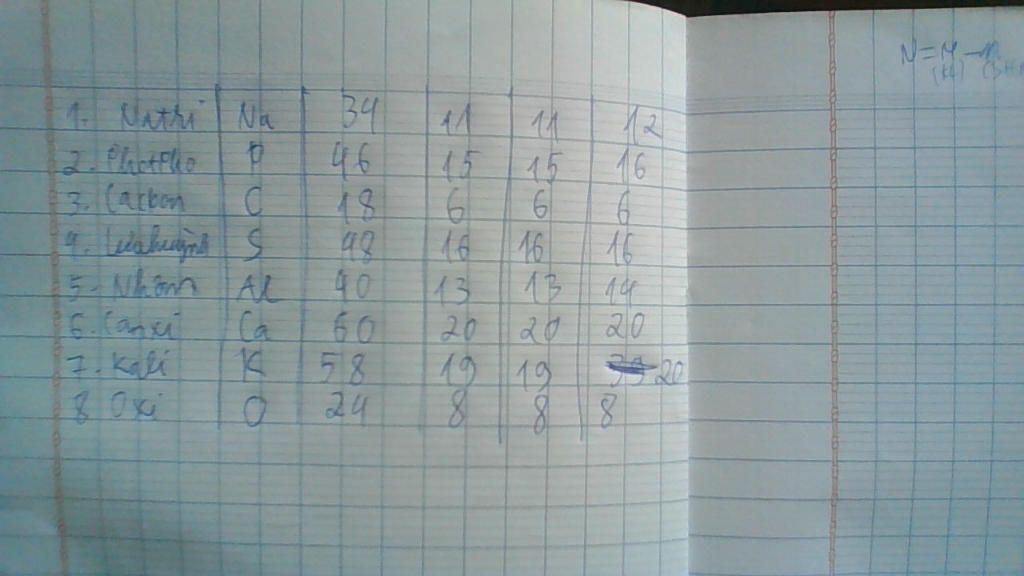 N = M - n
1. Natri Na 34 11 11 12
2. Photpho P 46 15 15 16
3. Carbon C 18 6 6 6
4. S 48 16 16 16
5. Nhôm Al 40 13 13 14
6. Canxi Ca 60 20 20 20
7. Kali K 58 19 19 20
8 Oxi O 24 8 8 8